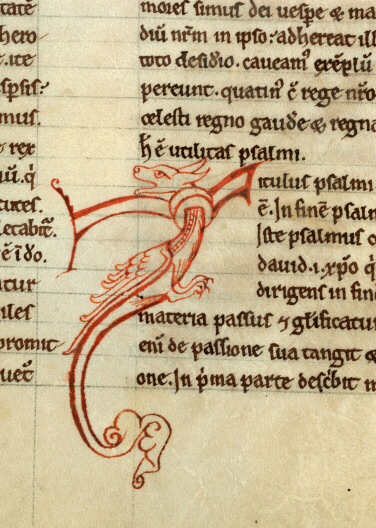 tatē
hero
ite
sp̄sis
mus.
rex
uū. q̇
tuces.
lectabīt̄.
ē ido.
atur
iles
promit
uet̄
moïes simus dei uespe & ma
diū nr̄m in ipso. adhereat ill
toto desid̾io. caueam᷒ exēplū
pereunt. quatin᷒ ē̆ rege nr̄o
celesti regno gaude & regna
h̄ ē utilitas psalmi.
Titulus psalmi
ē. In finē psalm
Iste psalmus
dauid. i. xp̄o q̇
dirigens in fin
materia passus & gl̄ificatur
enī de passione sua tangit &
one. In p̾ma parte descbit